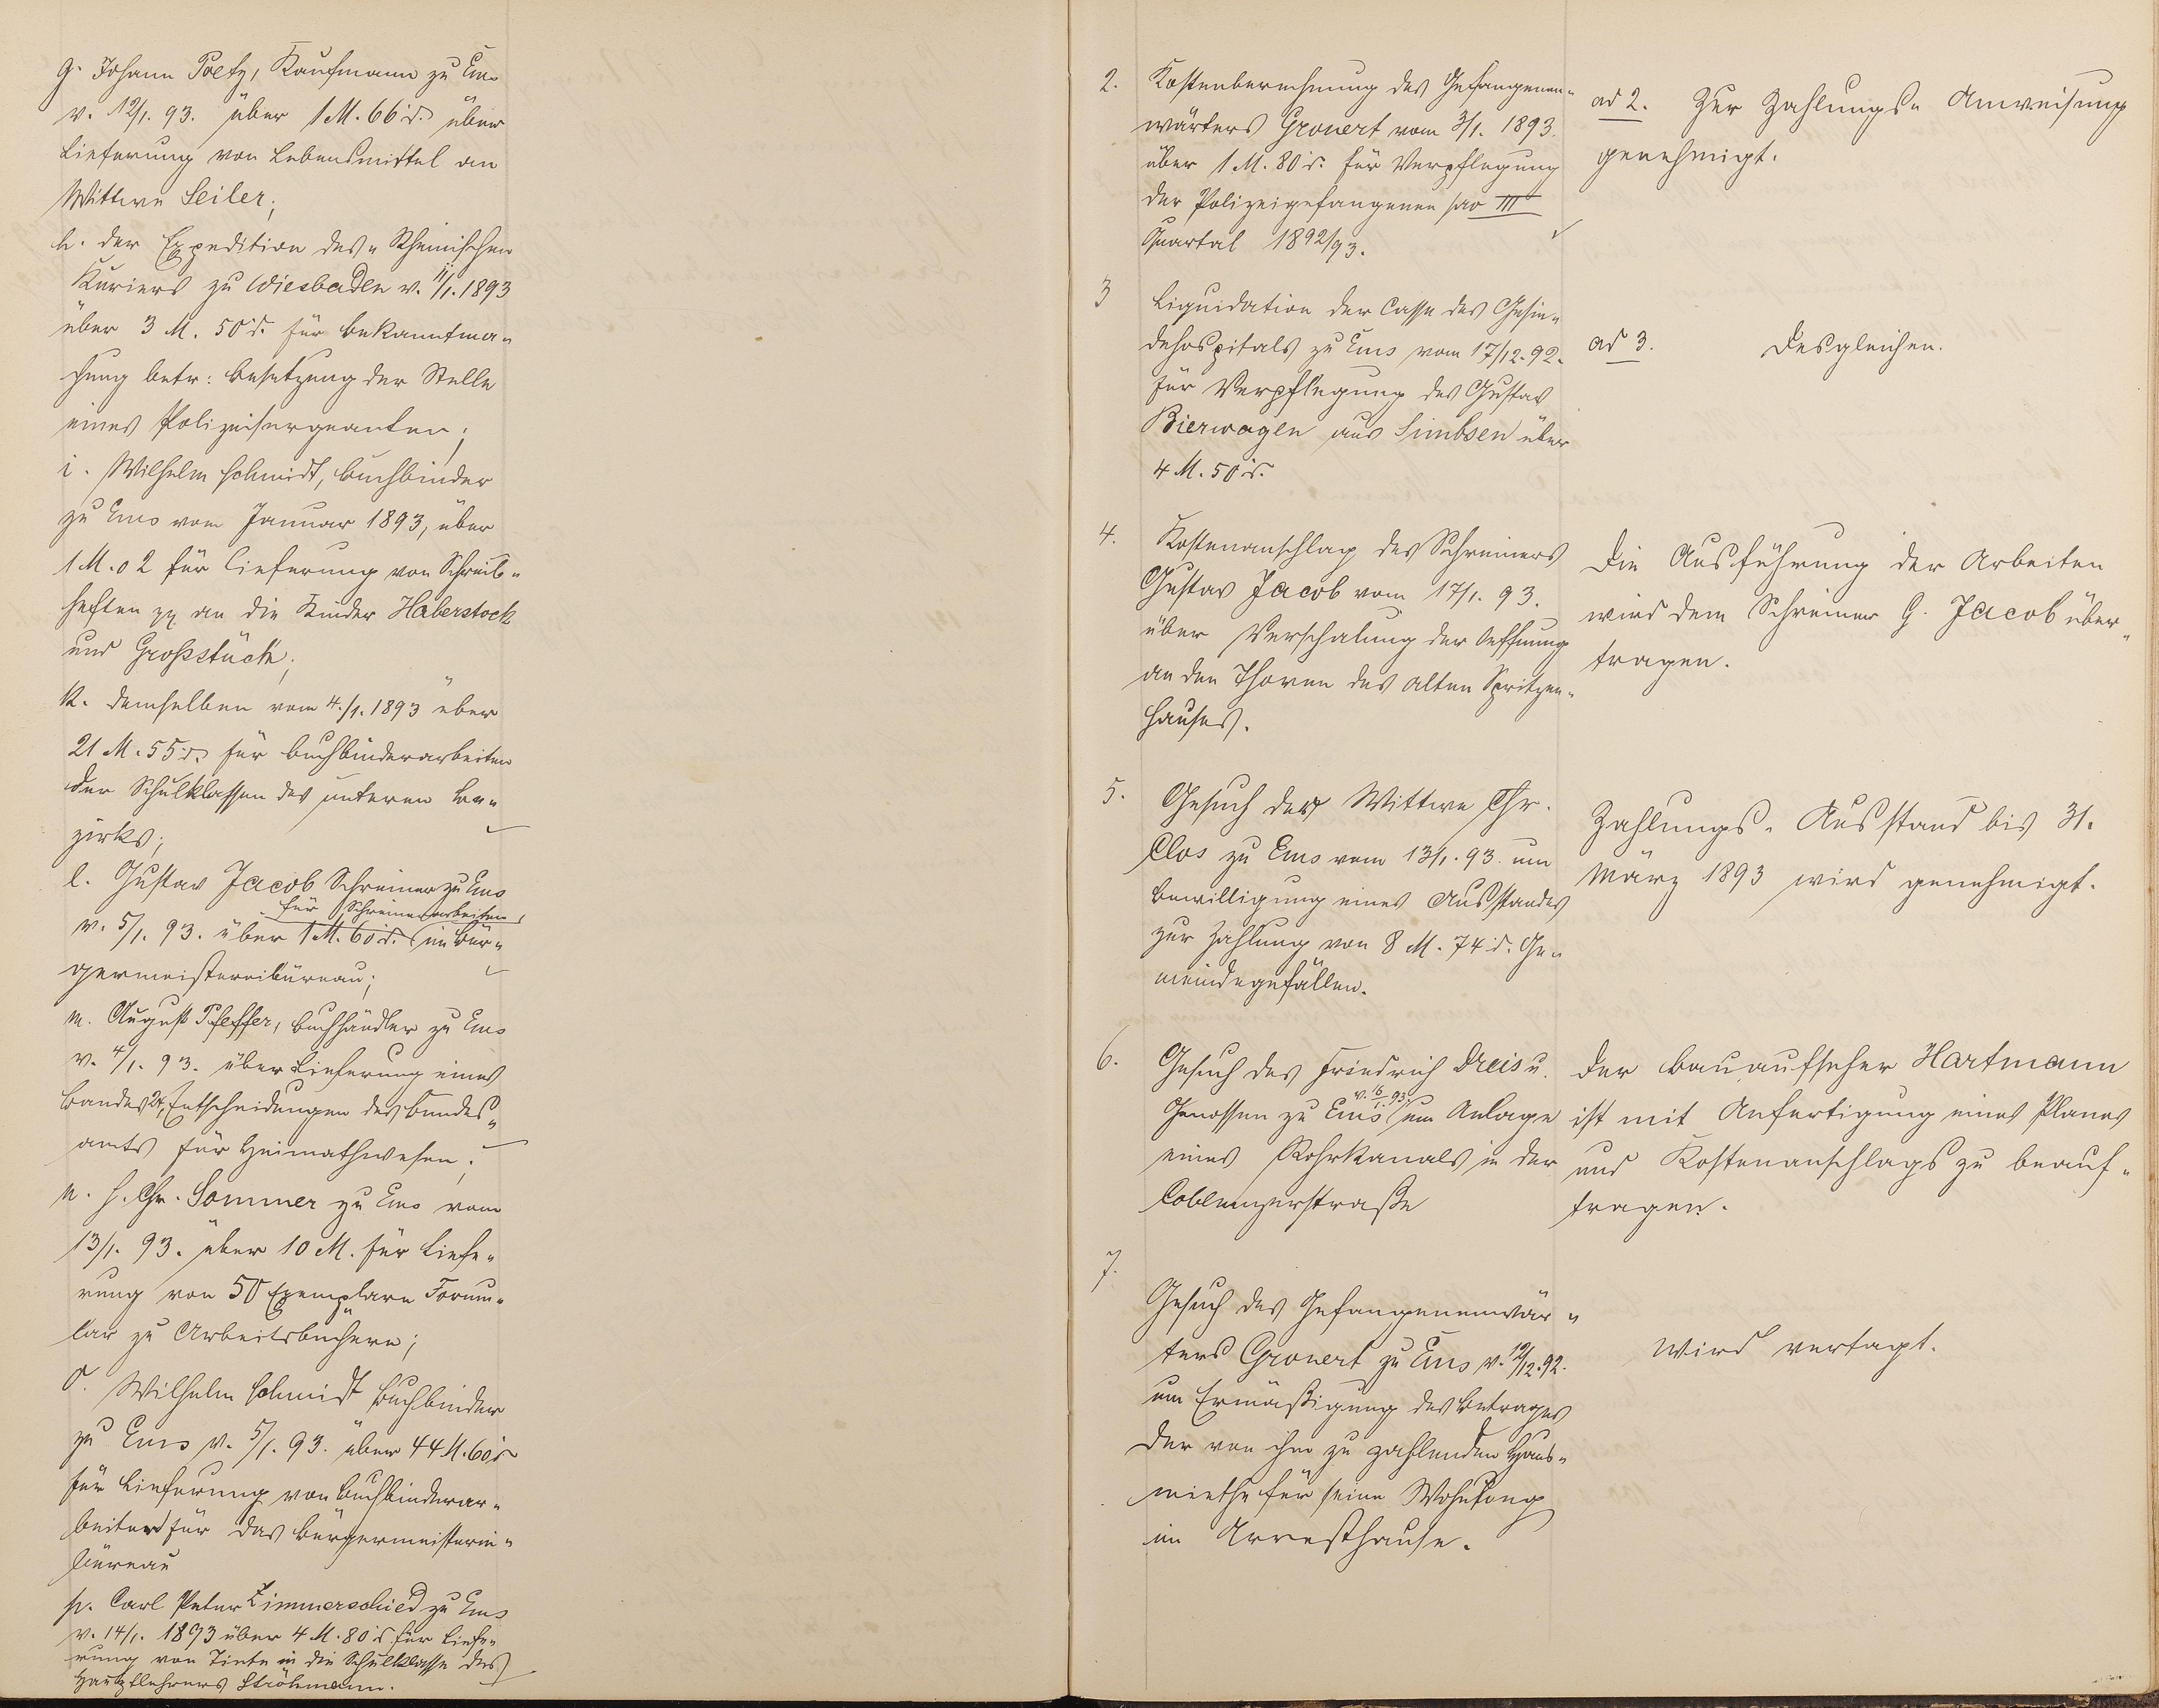 g. Johann Poetz, Kaufmann zu Ems
v. 12/1. 93. über 1 M. 66 d. über
Lieferung von Lebensmittel an
Wittwe Seiler;
h. der Expedition des „Rheinischen
Kuriers zu Wiesbaden v. 11/1. 1893
über 3 M. 50 d. für Bekanntma„
chung betr: Besetzung der Stelle
eines Polizeisergeanten;
i. Wilhelm Schmidt, Buchbinder
zu Ems vom Januar 1893, über
1 M. 02 für Lieferung von Schreib„
heften pp an die Kinder Haberstock
und Großstück;
k. demselben vom 4./1. 1893 über
21 M. 55 d. für Buchbinderarbeiten
der Schulklassen des unteren Be„
zirks;
l. Gustav Jacob Schreiner zu Ems
für Schreinerarbeiten
v. 5/1. 93. über 1 M. 60 d. im Bür„
germeistereibüreau;
m. August Pfeffer, Buchhändler zu Ems
v. 4/1. 93. über Lieferung eines
Bandes 24, Entscheidungen des Bundes„
amts für Heimathwesen;
n. H. Chr. Sommer zu Ems vom
13/1. 93. über 10 M. für Liefe„
rung von 50 Exemplare Formu„
lar zu Arbeitsbüchern;
o. Wilhelm Schmidt Buchbinder
zu Ems v. 5/1. 93. über 44 M. 60 d
für Lieferung von Buchbinderar„
beiten für das Bürgermeisterei„
büreau
p. Carl Peter Zimmerschied zu Ems
v. 14/1. 1893 über 4 M. 80 d für Liefe„
rung von Tinte in die Schulklasse des
Hauptlehrers Ströhmann.
2. Kostenberechnung des Gefangenen„
wärters Gronert vom 3/1. 1893.
über 1 M. 80 d. für Verpflegung
der Polizeigefangenen pro III
Quartal 1892/93.
ad 2. Zur Zahlungs„ Anweisung
genehmigt.
3 Liquidation der Casse des Gesin„
dehospitals zu Ems vom 17/12. 92.
für Verpflegung des Gustav
Bierwagen aus Simbsen über
4 M. 50 d.
ad 3. Desgleichen.
4. Kostenanschlag des Schreiners
Gustav Jacob vom 17/1. 93.
über Verschalung der Oeffnung
an den Thoren des alten Spritzen„
hauses.
Die Ausführung der Arbeiten
wird dem Schreiner G. Jacob über„
tragen.
5. Gesuch der Wittwe Chr.
Clos zu Ems vom 13/1. 93. um
Bewilligung eines Ausstandes
zur Zahlung von 8 M. 74 d. Ge„
meindegefällen.
Zahlungs„ Ausstand bis 31.
März 1893 wird genehmigt.
6. Gesuch des Friedrich Dreis u.
v. 16/1. 93.
Genossen zu Ems um Anlage
eines Rohrkanals in der
Coblenzerstraße
Der Bauaufseher Hartmann
ist mit Anfertigung eines Planes
und Kostenanschlags zu beauf„
tragen.
7.
Gesuch des Gefangenenwär„
ters Gronert zu Ems v. 19/12. 92.
um Ermäßigung des Betrages
der von ihm zu zahlenden Haus„
miethe für seine Wohnung
im Arresthause.
Wird vertagt.